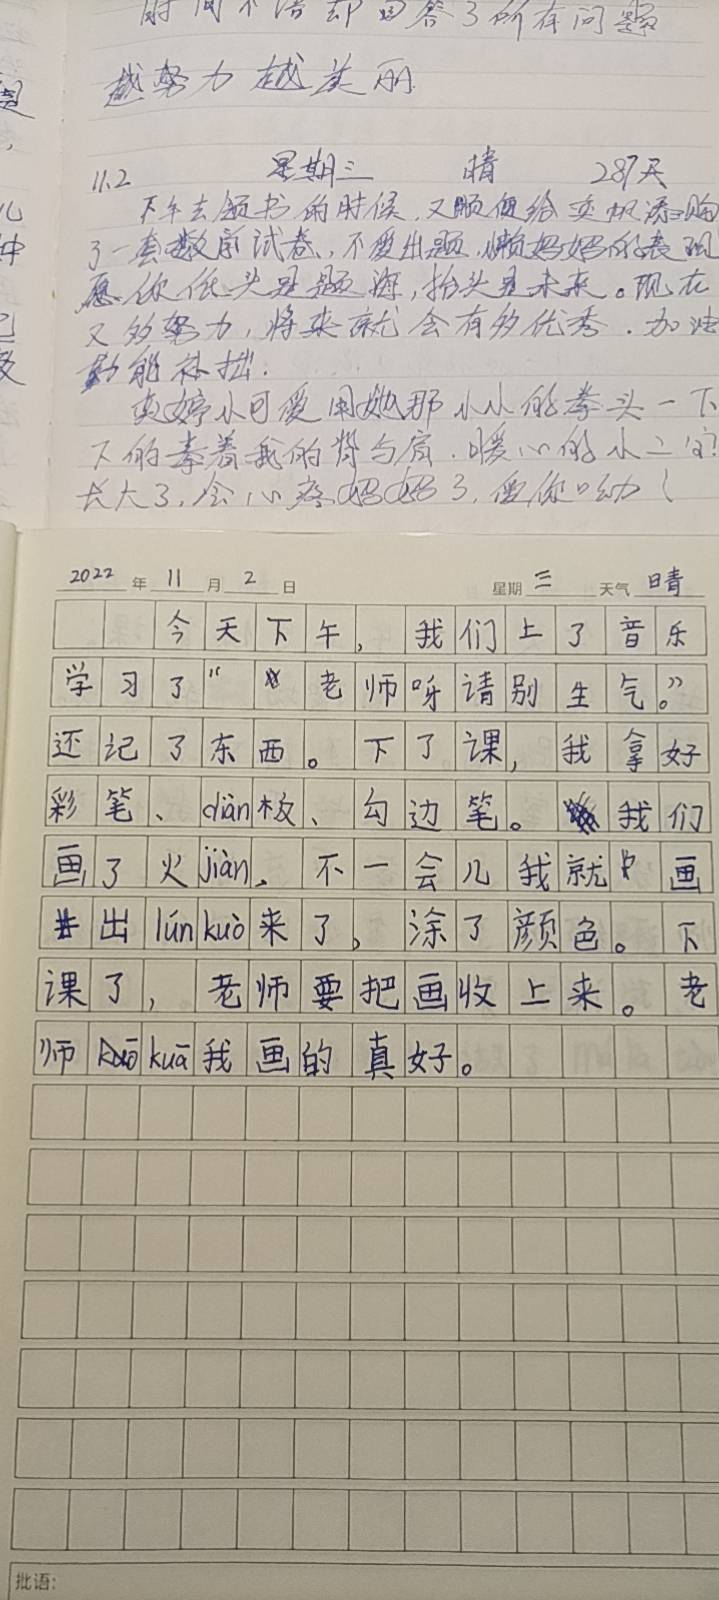 时间不语却回答了所有问题
越努力越美丽
11.2 星期三 晴 287天
下午去领书的时候,又顺便给奕帆添购
了一套数学试卷,不爱出题,懒妈妈的表现
愿你低头是题海,抬头是未来。现在
又多努力,将来就会有多优秀.加油
勤能补拙.
奕婷小可爱用她那小小的拳头一下
下的拳着我的背与肩.暖心的小二宝?
长大了,会心疼妈妈了,爱你呦!
2022年11月2日 星期三 天气晴
今天下午,我们上了音乐
学习了“老师呀请别生气。”
还记了东西。下了课,我拿好
彩笔、diàn板、勾边笔。我们
画了火jiàn、不一会儿我就画
出lún kuò来了,涂了颜色。下
课了,老师要把画收上来。老
师kuā我画的真好。
批语: